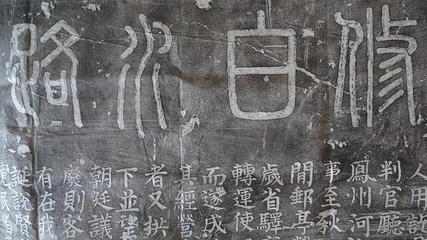 修白水路
人用訖
判官廳
鳳州河
事至秋
間郵亭
歲省驛
轉運使
而遂成
其經營
者又拱
下並望
朝廷議
廢則客
有在我